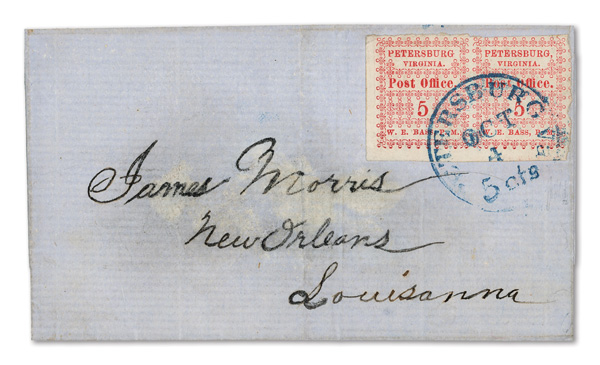 PETERSBURG
VIRGINIA.
Post Office.
5
W. E. BASS, P.M.
PETERSBURG,
VIRGINIA.
Post Office.
5
W. E. BASS,
PETERSBURG
OCT
4
5 cts
James Morris
New Orleans
Louisanna